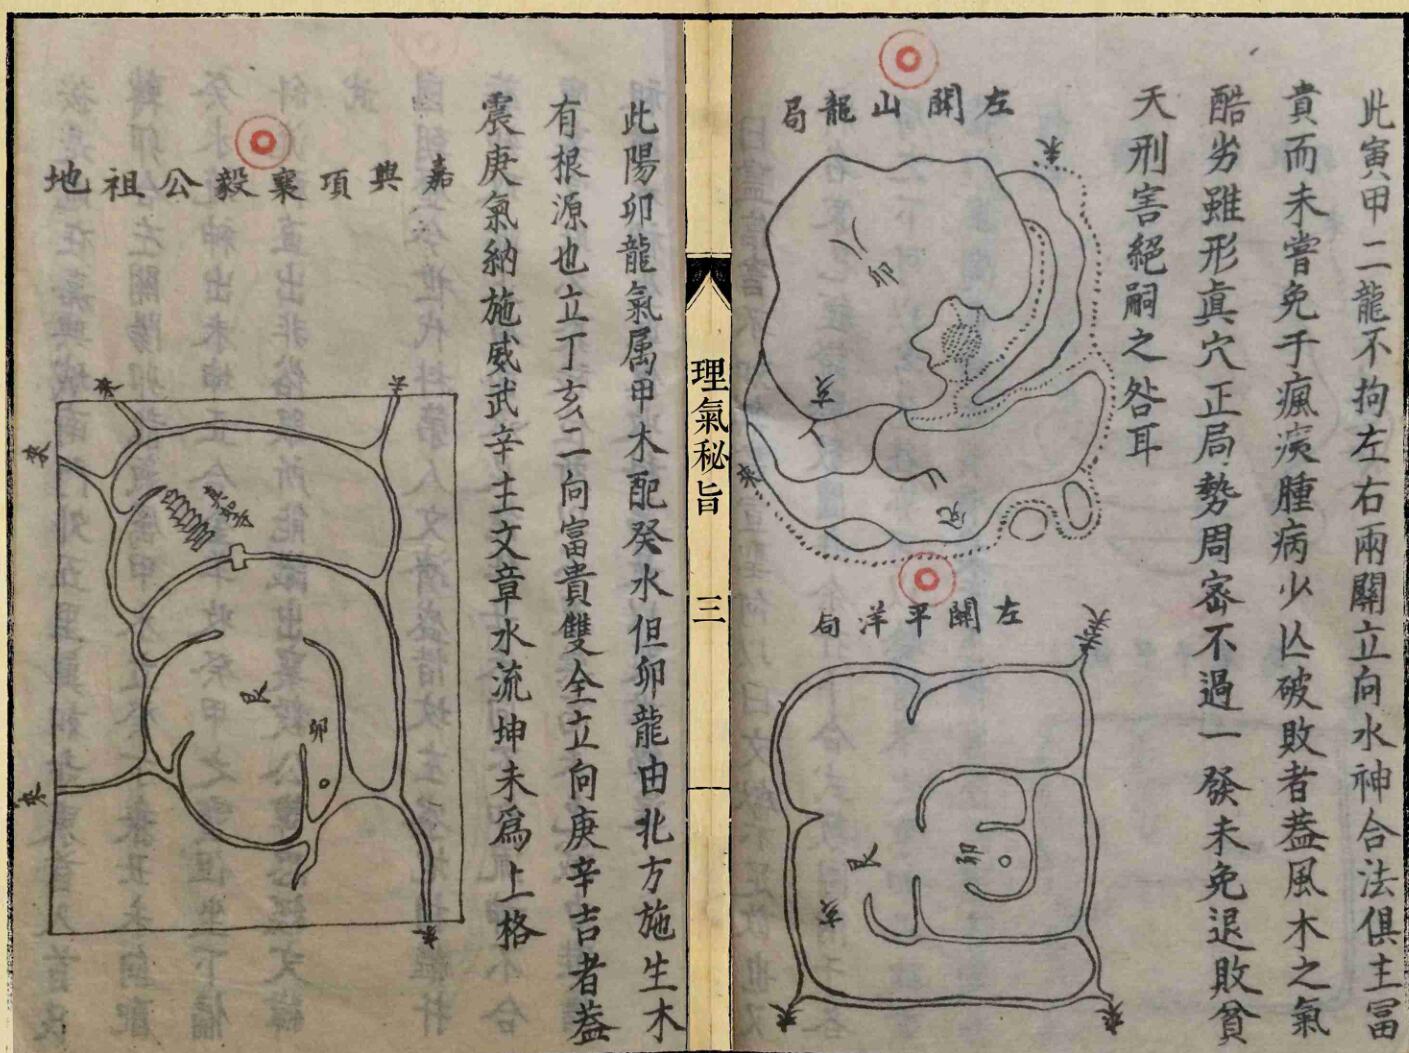 此寅甲二龍不拘左右兩關立向水神合法俱主冨
貴而未嘗免于瘋痰腫病少亾破敗者葢風木之氣
酷劣雖形眞穴正局勢周密不過一發未免退敗貧
天刑害絕嗣之咎耳
左關山龍局
未
卯
亥
来
兌
左關平洋局
天
来
艮
卯
亥
来
来
理氣秘旨
三
此陽卯龍氣属甲木配癸水但卯龍由北方施生木
有根源也立丁亥二向富貴雙全立向庚辛吉者葢
震庚氣納施威武辛主文章水流坤未爲上格
嘉興項襄毅公祖地
来
来
艮
卯
来
未